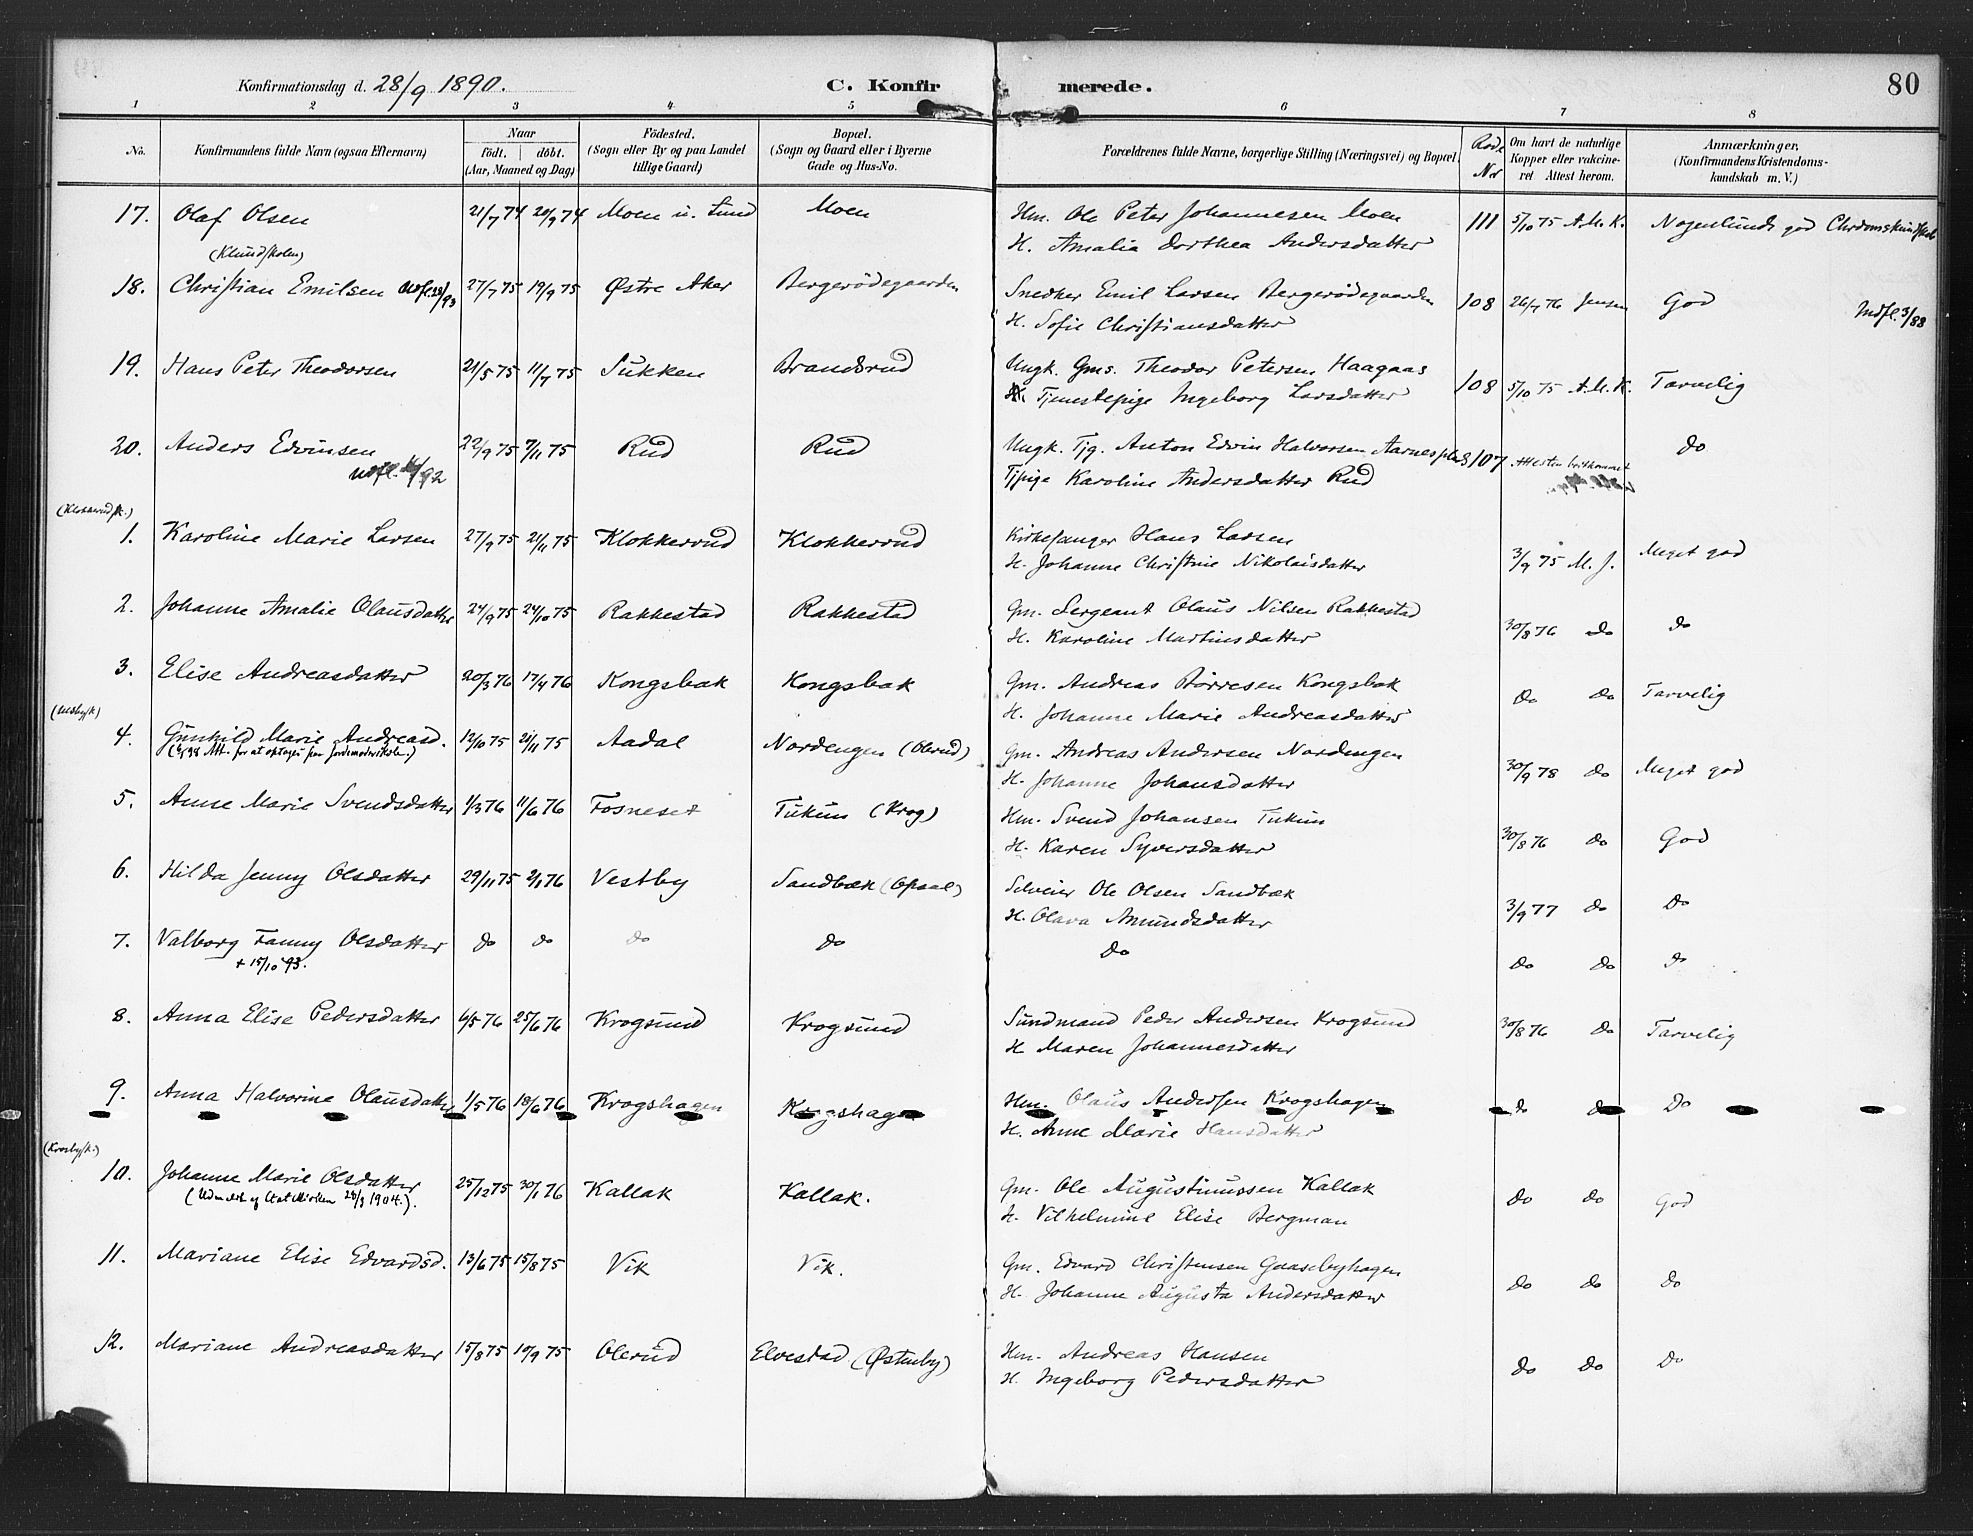 Konfirmationsdag d. 28/9 1890. C. Konfirmerede. 80
1 2 3 4 5 6 7 8
No. Konfirmandens fulde Navn (ogsaa Efternavn) Naar födt. döbt. (Aar, Maaned og Dag) Födested. (Sogn eller By og paa Landet tillige Gaard) Bopæl. (Sogn og Gaard eller i Byerne Gade og Hus-No. Forældrenes fulde Navne, borgerlige Stilling (Næringsvei) og Bopæl. Rode Nr Om havt de naturlige Kopper eller vakcineret. Attest herom. Anmærkninger. (Konfirmandens Kristendomskundskab m. V.)
17. Olaf Olsen 21/7 74 20/9 74 Moen u. Sund Moen Hm. Ole Peter Johannesen Moen 111 5/10 75 A.M.K. Nogenlunde god Chrdomskundskab
(Klundskolen) H. Amalia Dorthea Andersdatter
18. Christian Emilsen 27/7 75 19/9 75 Østre Aker Bergerödegaarden Snedker Emil Larsen Bergerödegaarden 108 26/7 76 Jensen God Indfl. 3/88
H. Sofie Christiansdatter
19. Hans Peter Theodorsen 21/5 75 11/7 75 Sukken Brandsrud Ungk. Gms. Theodor Petersen Haagaas 108 5/10 75 A.M.K. Tarvelig
Tjenestepige Ingeborg Larsdatter
20. Anders Edvinsen 22/9 75 7/11 75 Rud Rud Ungk. Tjg. Anton Edvin Halvorsen 107 Do
Tjpige Karoline Andersdatter Rud
(Klokkerudsk.)
1. Karoline Marie Larsen 27/9 75 21/11 75 Klokkerud Klokkerud Kirkesanger Hans Larsen 3/9 75 M. J. Meget god
H. Johanne Christine Nikolaisdatter
2. Johanne Amalie Olausdatter 24/9 75 24/10 75 Rakkestad Rakkestad Gm. Sergeant Olaus Nilsen Rakkestad 30/8 76 do do
H. Karoline Martinsdatter
3. Elise Andreasdatter 20/3 76 17/4 76 Kongsbak Kongsbak Gm. Andreas Börresen Kongsbak do do Tarvelig
H. Johanne Marie Andreasdatter
4. Gunhild Marie Andreasd. 12/10 75 21/11 75 Aadal Nordengen (Olerud) Gm. Andreas Andersen Nordengen 30/9 78 do Meget god
H. Johanne Johansdatter
5. Anne Marie Svendsdatter 1/3 76 11/6 76 Fosneset Tukun (Krog) Hm. Svend Johansen Tukun 30/8 76 do God
H. Karen Syversdatter
6. Hilda Jenny Olsdatter 29/11 75 2/1 76 Vestby Sandbæk (Opaal) Selveier Ole Olsen Sandbæk 3/9 77 do Do
H. Olava Amundsdatter
7. Valborg Fanny Olsdatter do do do do do do do do
+ 15/10 93.
8. Anna Elise Pedersdatter 6/5 76 25/6 76 Krogsund Krogsund Sundmand Peder Andersen Krogsund 30/8 76 do Tarvelig
H Maren Johannesdatter
9. Anna Halvorine Olausdatter 1/5 76 18/6 76 Krogshagen Krogshagen Hm. Olaus Andersen Krogshagen do do Do
H. Anne Marie Hansdatter
(Krosbysk.)
10. Johanne Marie Olsdatter 25/12 75 30/1 76 Kallak Kallak. Gm. Ole Augustinussen Kallak do do God
(Udmeldt af Statskirken 28/3 1904.). H. Vilhelmine Elise Bergman
11. Mariane Elise Edvardsd. 13/6 75 15/8 75 Vik Vik. Gm. Edvard Christensen Gaasebyhagen do do Do
H. Johanne Augusta Andersdatter
12. Mariane Andreasdatter 15/8 75 19/9 75 Olerud Elvestad (Østenby) Hm. Andreas Hansen do do Do
H. Ingeborg Pedersdatter